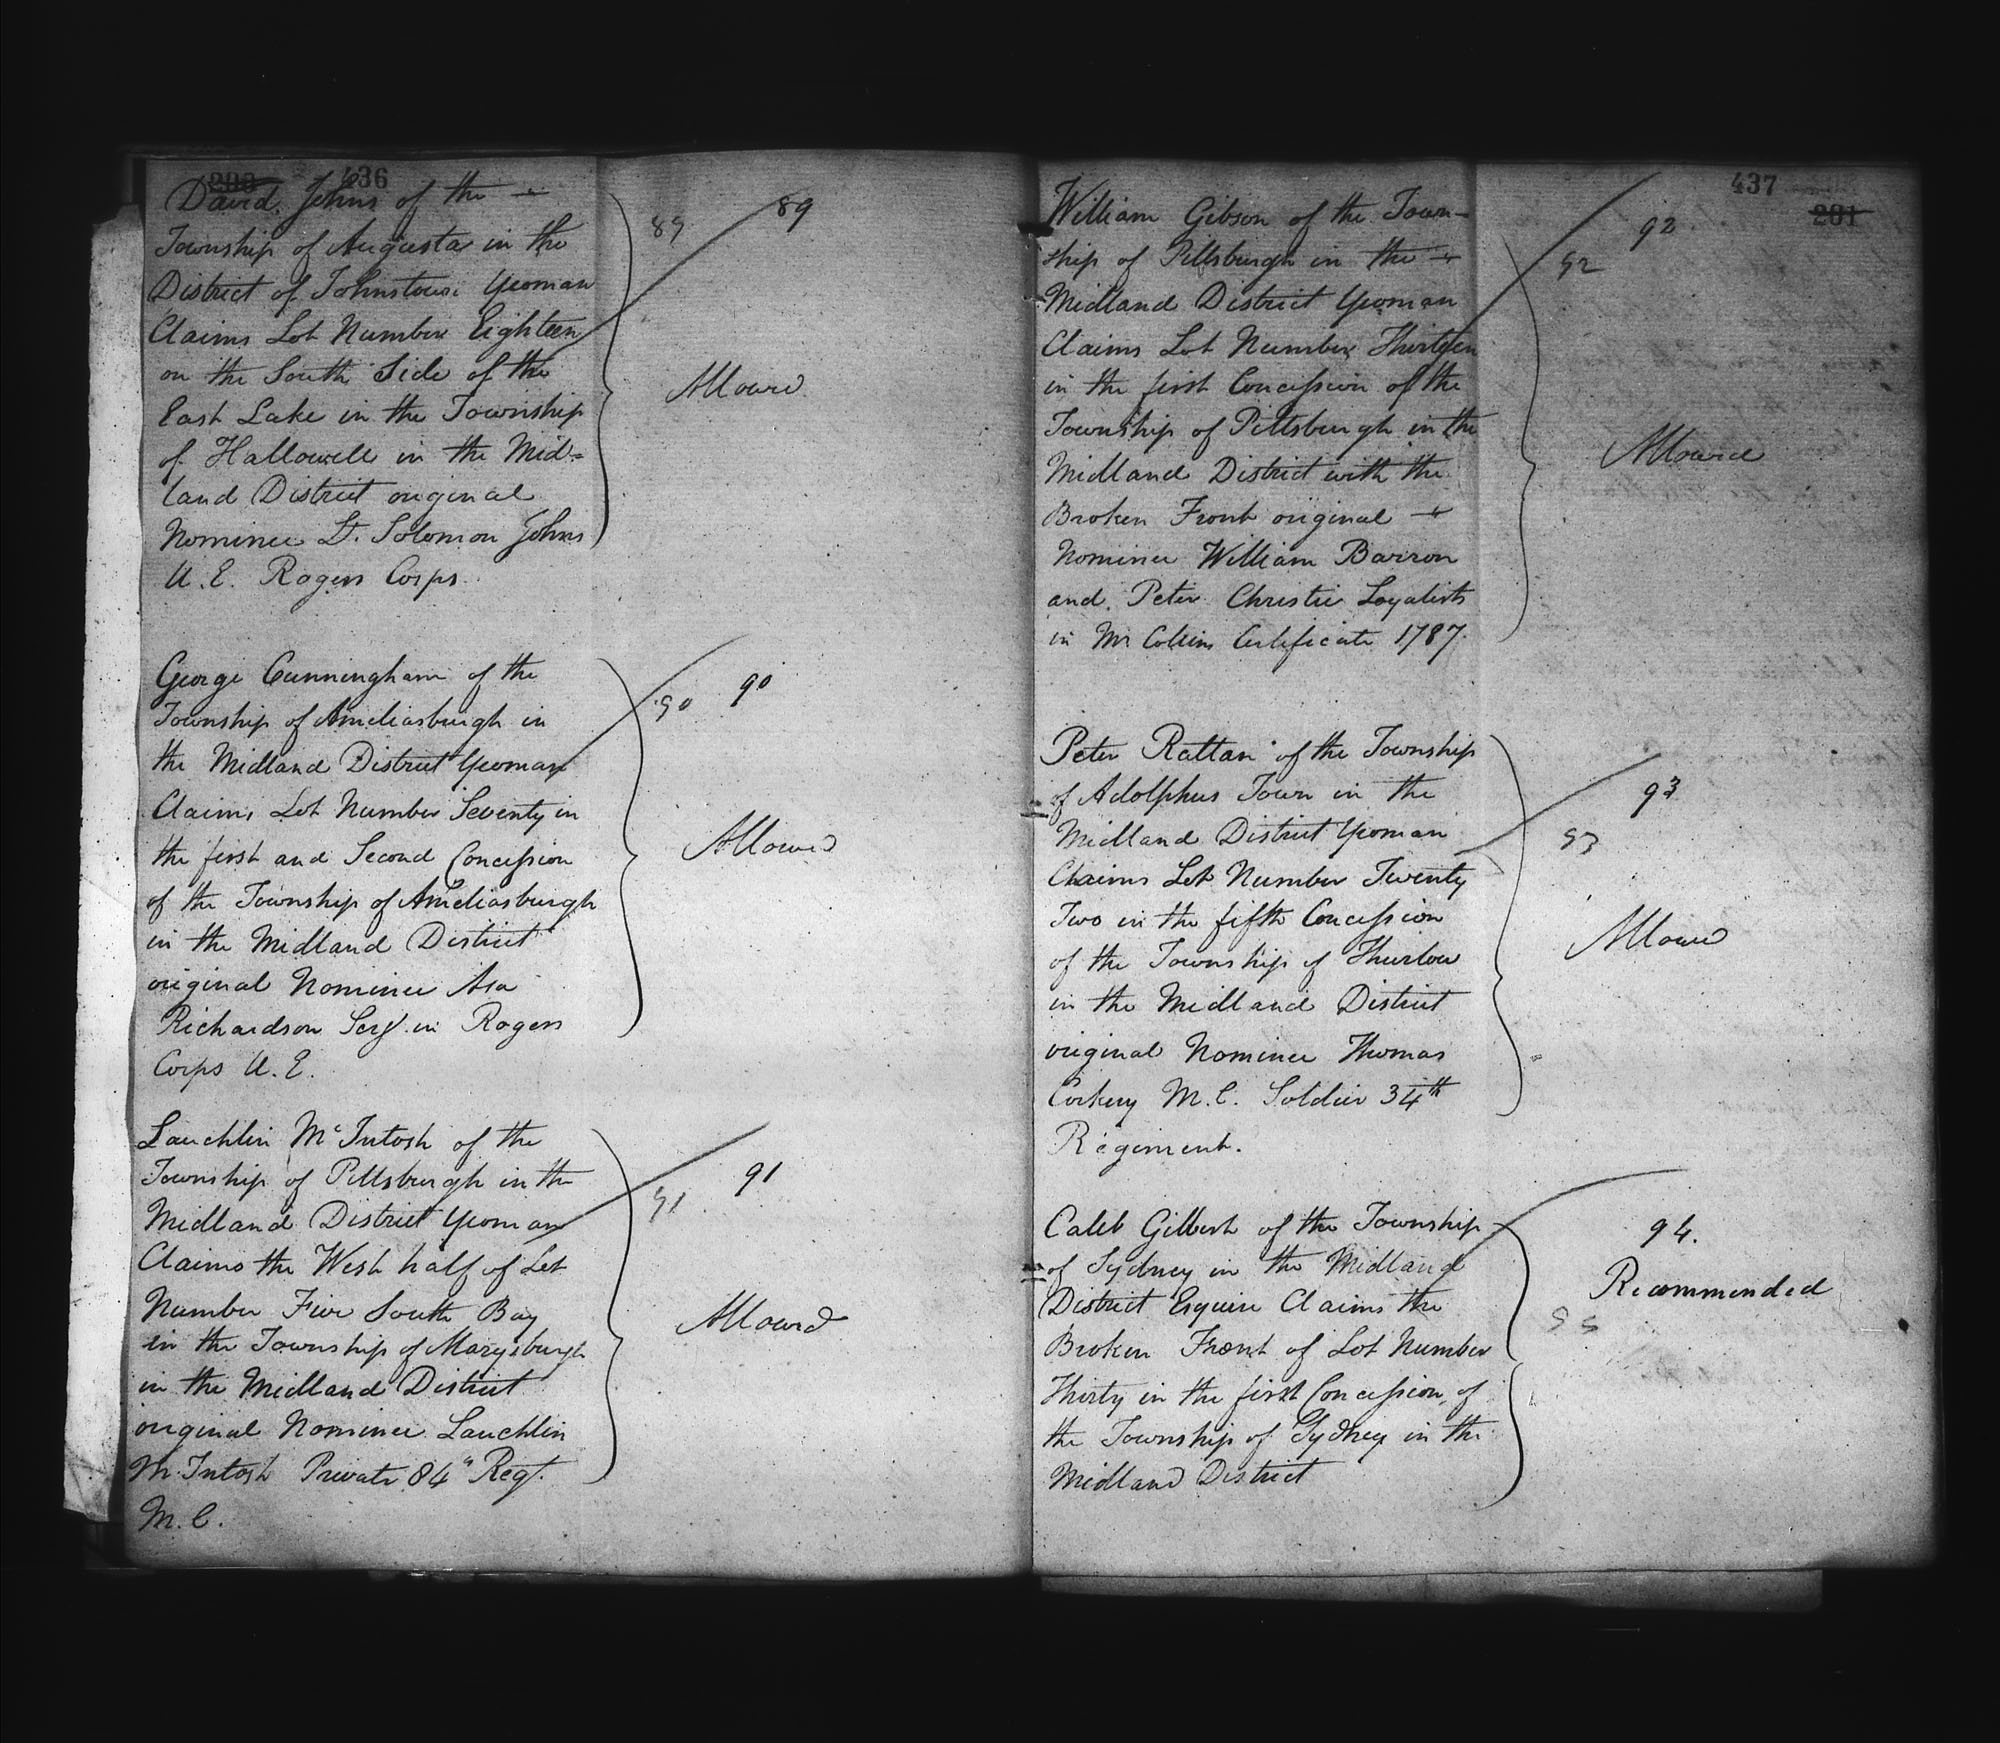 436
David Johns of the
Township of Augusta in the
District of Johnstown Yeoman
Claims Lot Number Eighteen
on the South Side of the
East Lake in the Township
of Hallowell in the Mid=
land District original
Nominee Lt. Solomon Johns
U.E. Rogers Corps.
89
89
Allowed
George Cunningham of the
Township of Ameliasburgh in
the Midland District Yeoman
Claims Lot Number Seventy in
the first and Second Concession
of the Township of Ameliasburgh
in the Midland District
original Nominee Asa
Richardson Serjt. in Rogers
Corps U.E.
90
90
Allowed
Lauchlin McIntosh of the
Township of Pittsburgh in the
Midland District Yeoman
Claims the West half of Lot
Number Five South Bay
in the Township of Marysburgh
in the Midland District
original Nominee Lauchlin
McIntosh Private 84th Regt.
M.C.
91
91
Allowed
437
201
William Gibson of the Town-
ship of Pittsburgh in the
Midland District Yeoman
Claims Lot Number Thirteen
in the first Concession of the
Township of Pittsburgh in the
Midland District with the
Broken Front original
Nominee William Barron
and Peter Christie Loyalists
in Mr Collins Certificate 1787.
92
92
Allowed
Peter Rattan of the Township
of Adolphus Town in the
Midland District Yeoman
Claims Lot Number Twenty
Two in the fifth Concession
of the Township of Thurlow
in the Midland District
original Nominee Thomas
Corkery M.C. Soldier 34th
Regiment.
93
93
Allowed
Caleb Gilbert of the Township
of Sydney in the Midland
District Esquire Claims the
Broken Front of Lot Number
Thirty in the first Concession of
the Township of Sydney in the
Midland District
94.
Recommended